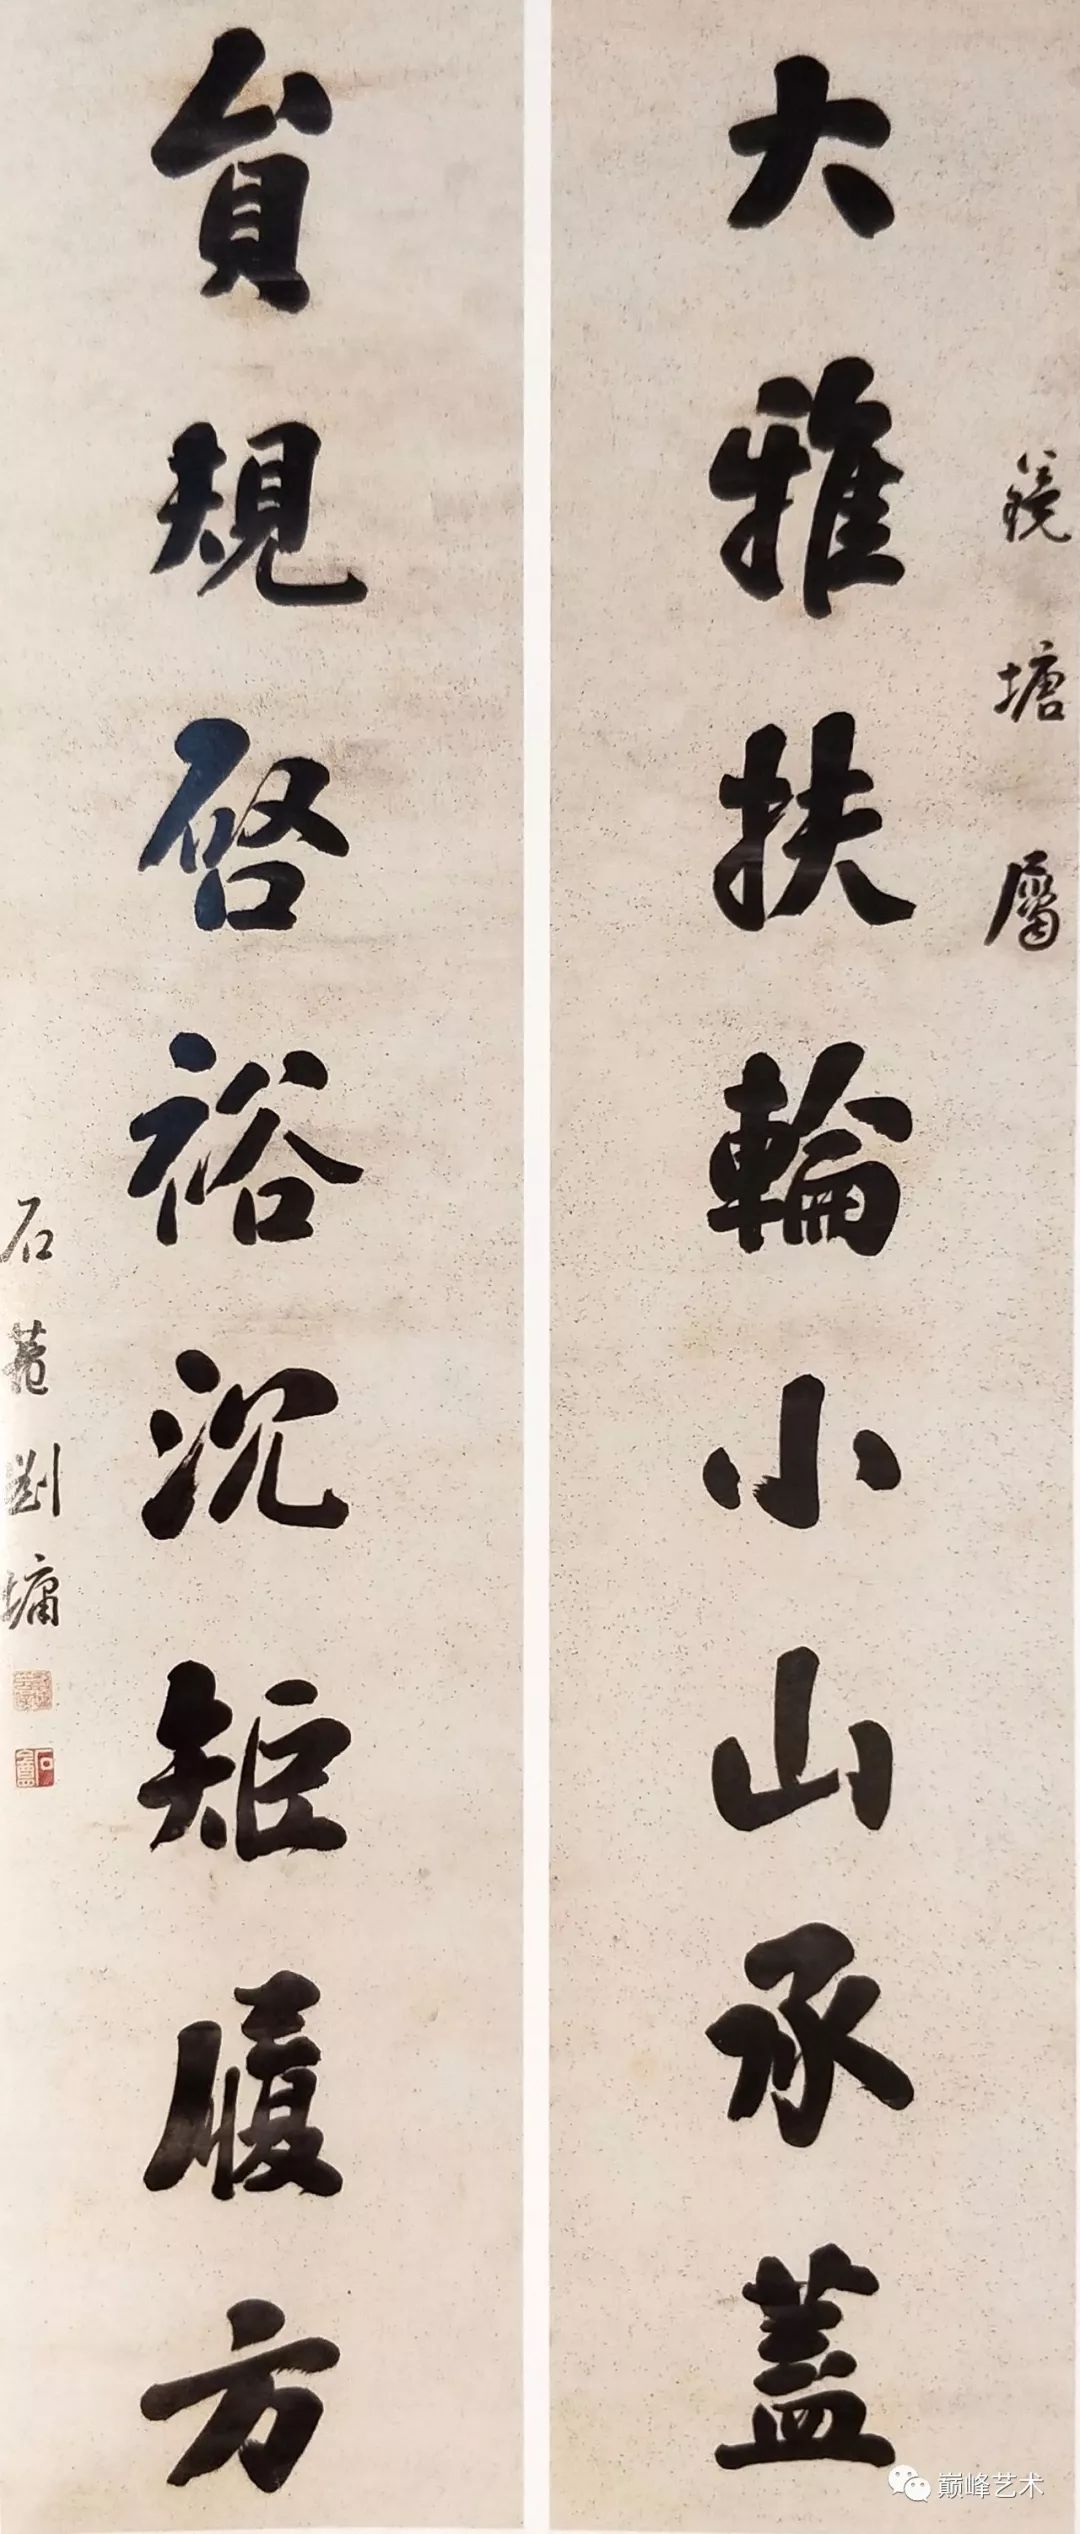 鏡塘屬
大雅扶輪小山承蓋
員規啓裕沉矩履方
石菴劉墉
巅峰艺术